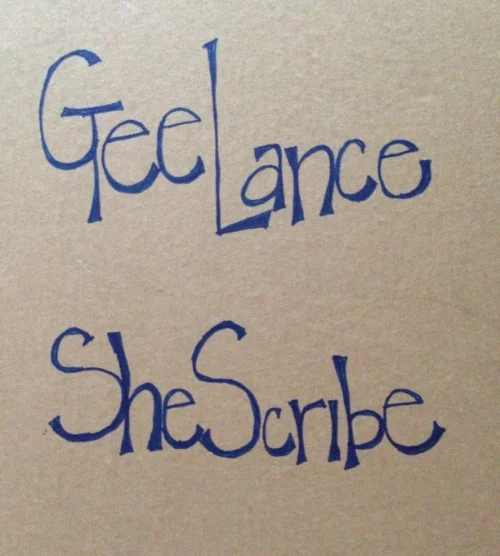 GeeLance
SheScribe